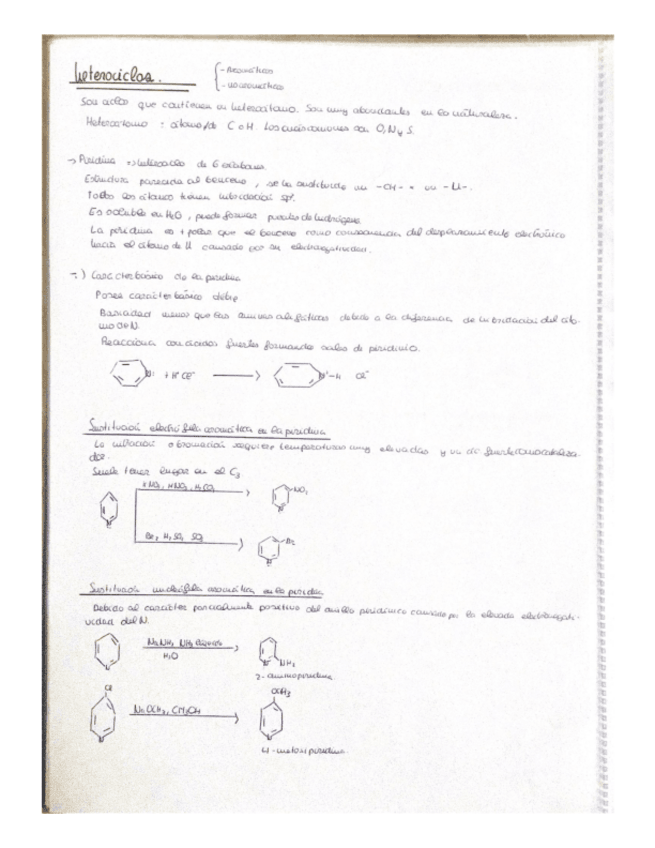 Heterociclos. - Aromáticos
- No aromáticos
Son ciclos que contienen un heteroátomo. Son muy abundantes en la naturaleza.
Heteroátomo : átomo/de C o H. Los más comunes son O, N y S.
→ Piridina → heterociclo de 6 eslabones.
Estructura parecida al benceno, se ha sustituido un -CH- = un -N-.
Todos los átomos tienen hibridación sp².
Es soluble en H₂O, puede formar puentes de hidrógeno.
La piridina es + polar que el benceno como consecuencia del desplazamiento electrónico
hacia el átomo de N causado por su electronegatividad.
-.) Carácter básico de la piridina
Posee carácter básico débil
Basicidad menos que las aminas alifáticas debido a la diferencia de hibridación del áto-
mo de N.
Reacciona con ácidos fuertes formando sales de piridinio.
N: + H⁺ Cl⁻ N⁺-H Cl⁻
Sustitución electrófila aromática en la piridina
La nitración o bromación requiere temperaturas muy elevadas y un
dor.
Suele tener lugar en el C₃.
KNO₃, HNO₃, H₂SO₄ NO₂
N
Br₂, H₂SO₄ SO₃ Br
Sustitución nucleófila aromática en la piridina
Debido al carácter parcialmente positivo del anillo piridínico causado por la elevada electronegati-
vidad del N.
NaNH₂, NH₃ líquido
H₂O NH₂
2-aminopiridina
Cl OCH₃
NaOCH₃, CH₃OH
4-metoxipiridina